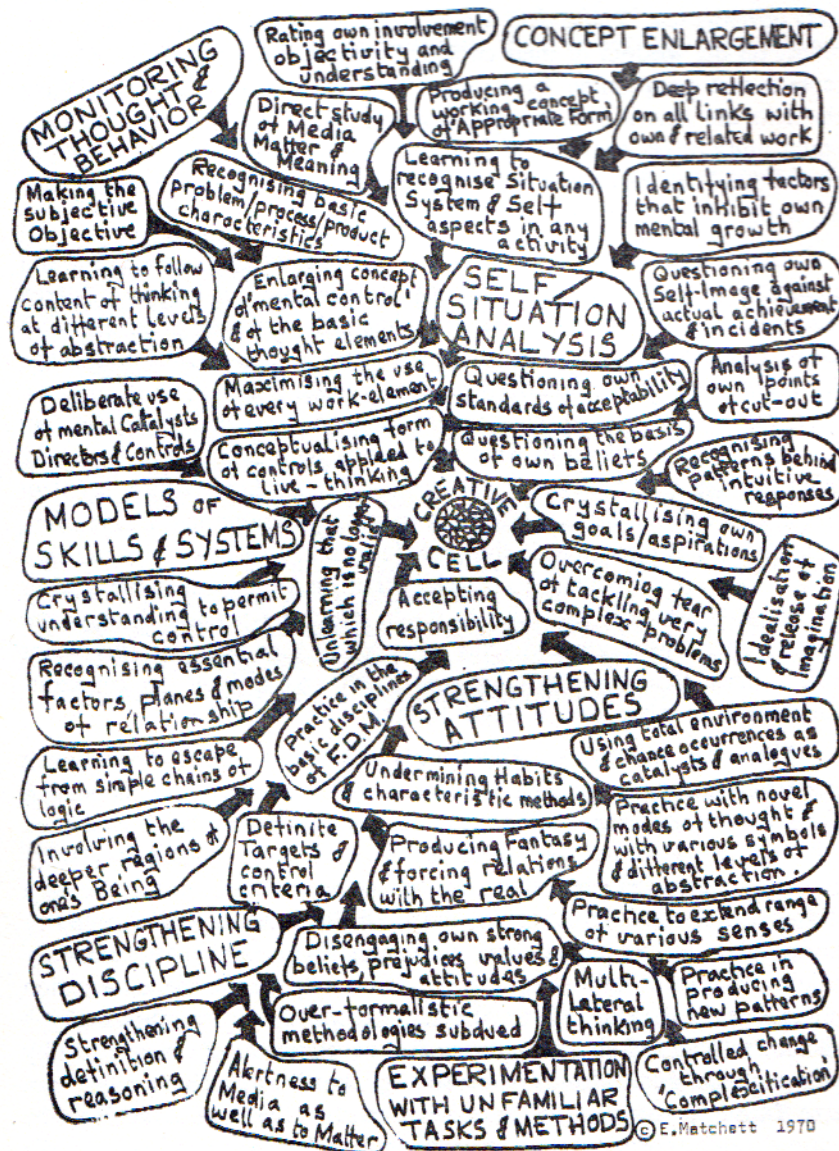 Rating own involvement
objectivity and
understanding
CONCEPT ENLARGEMENT
MONITORING
THOUGHT &
BEHAVIOR
Direct study
of Media
Matter &
Meaning
Producing a
working concept
of 'Appropriate Form'
Deep reflection
on all links with
own & related work
Making the
subjective
Objective
Recognising basic
problem/process/product
characteristics
Learning to
recognise Situation
System & Self
aspects in any
activity
Identifying factors
that inhibit own
mental growth
Learning to follow
content of thinking
at different levels
of abstraction
Enlarging concept
of 'mental control'
& of the basic
thought elements
SELF/
SITUATION
ANALYSIS
Questioning own
Self-Image against
actual achievement
& incidents
Deliberate use
of mental Catalysts
Directors & Controls
Maximising the use
of every work-element
Questioning own
standards of acceptability
Analysis of
own points
of cut-out
Conceptualising form
of controls applied to
live-thinking
Questioning the basis
of own beliefs
Recognising
patterns behind
intuitive
responses
MODELS OF
SKILLS & SYSTEMS
Unlearning that
which is no longer
valid
CREATIVE
CELL
Crystallising own
goals/aspirations
Crystallising
understanding to permit
control
Accepting
responsibility
Overcoming fear
of tackling very
complex problems
Idealisation
& release of
imagination
Recognising essential
factors planes & modes
of relationship
Practice in the
basic disciplines
of F.D.M.
STRENGTHENING
ATTITUDES
Using total environment
& chance occurrences as
catalysts & analogues
Learning to escape
from simple chains of
logic
Undermining Habits
& characteristic methods
Practice with novel
modes of thought &
with various symbols
& different levels of
abstraction.
Involving the
deeper regions of
one's Being
Definite
Targets &
control
criteria
Producing Fantasy
& forcing relations
with the real
Practice to extend range
of various senses
STRENGTHENING
DISCIPLINE
Disengaging own strong
beliefs, prejudices, values &
attitudes
Multi-
Lateral
thinking
Practice in
producing
new patterns
Over-formalistic
methodologies subdued
Strengthening
definition &
reasoning
Alertness to
Media as
well as to Matter
EXPERIMENTATION
WITH UNFAMILIAR
TASKS & METHODS
Controlled change
through
'Complexification'
© E.Matchett 1970